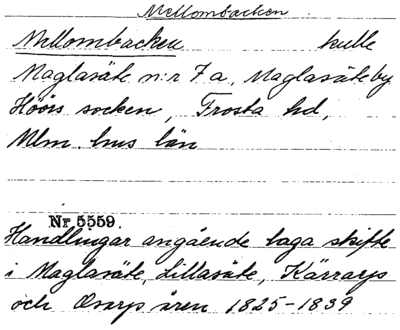 Mellombacken
Mellombacken kulle
Maglasäte n:r 7a, Maglasäte by
Höörs socken, Frosta hd,
Mlm. hus län
Nr 5559.
Handlingar angående laga skifte
i Maglasäte, Lillasäte, Kärrarp
och Ousarp åren 1825-1839